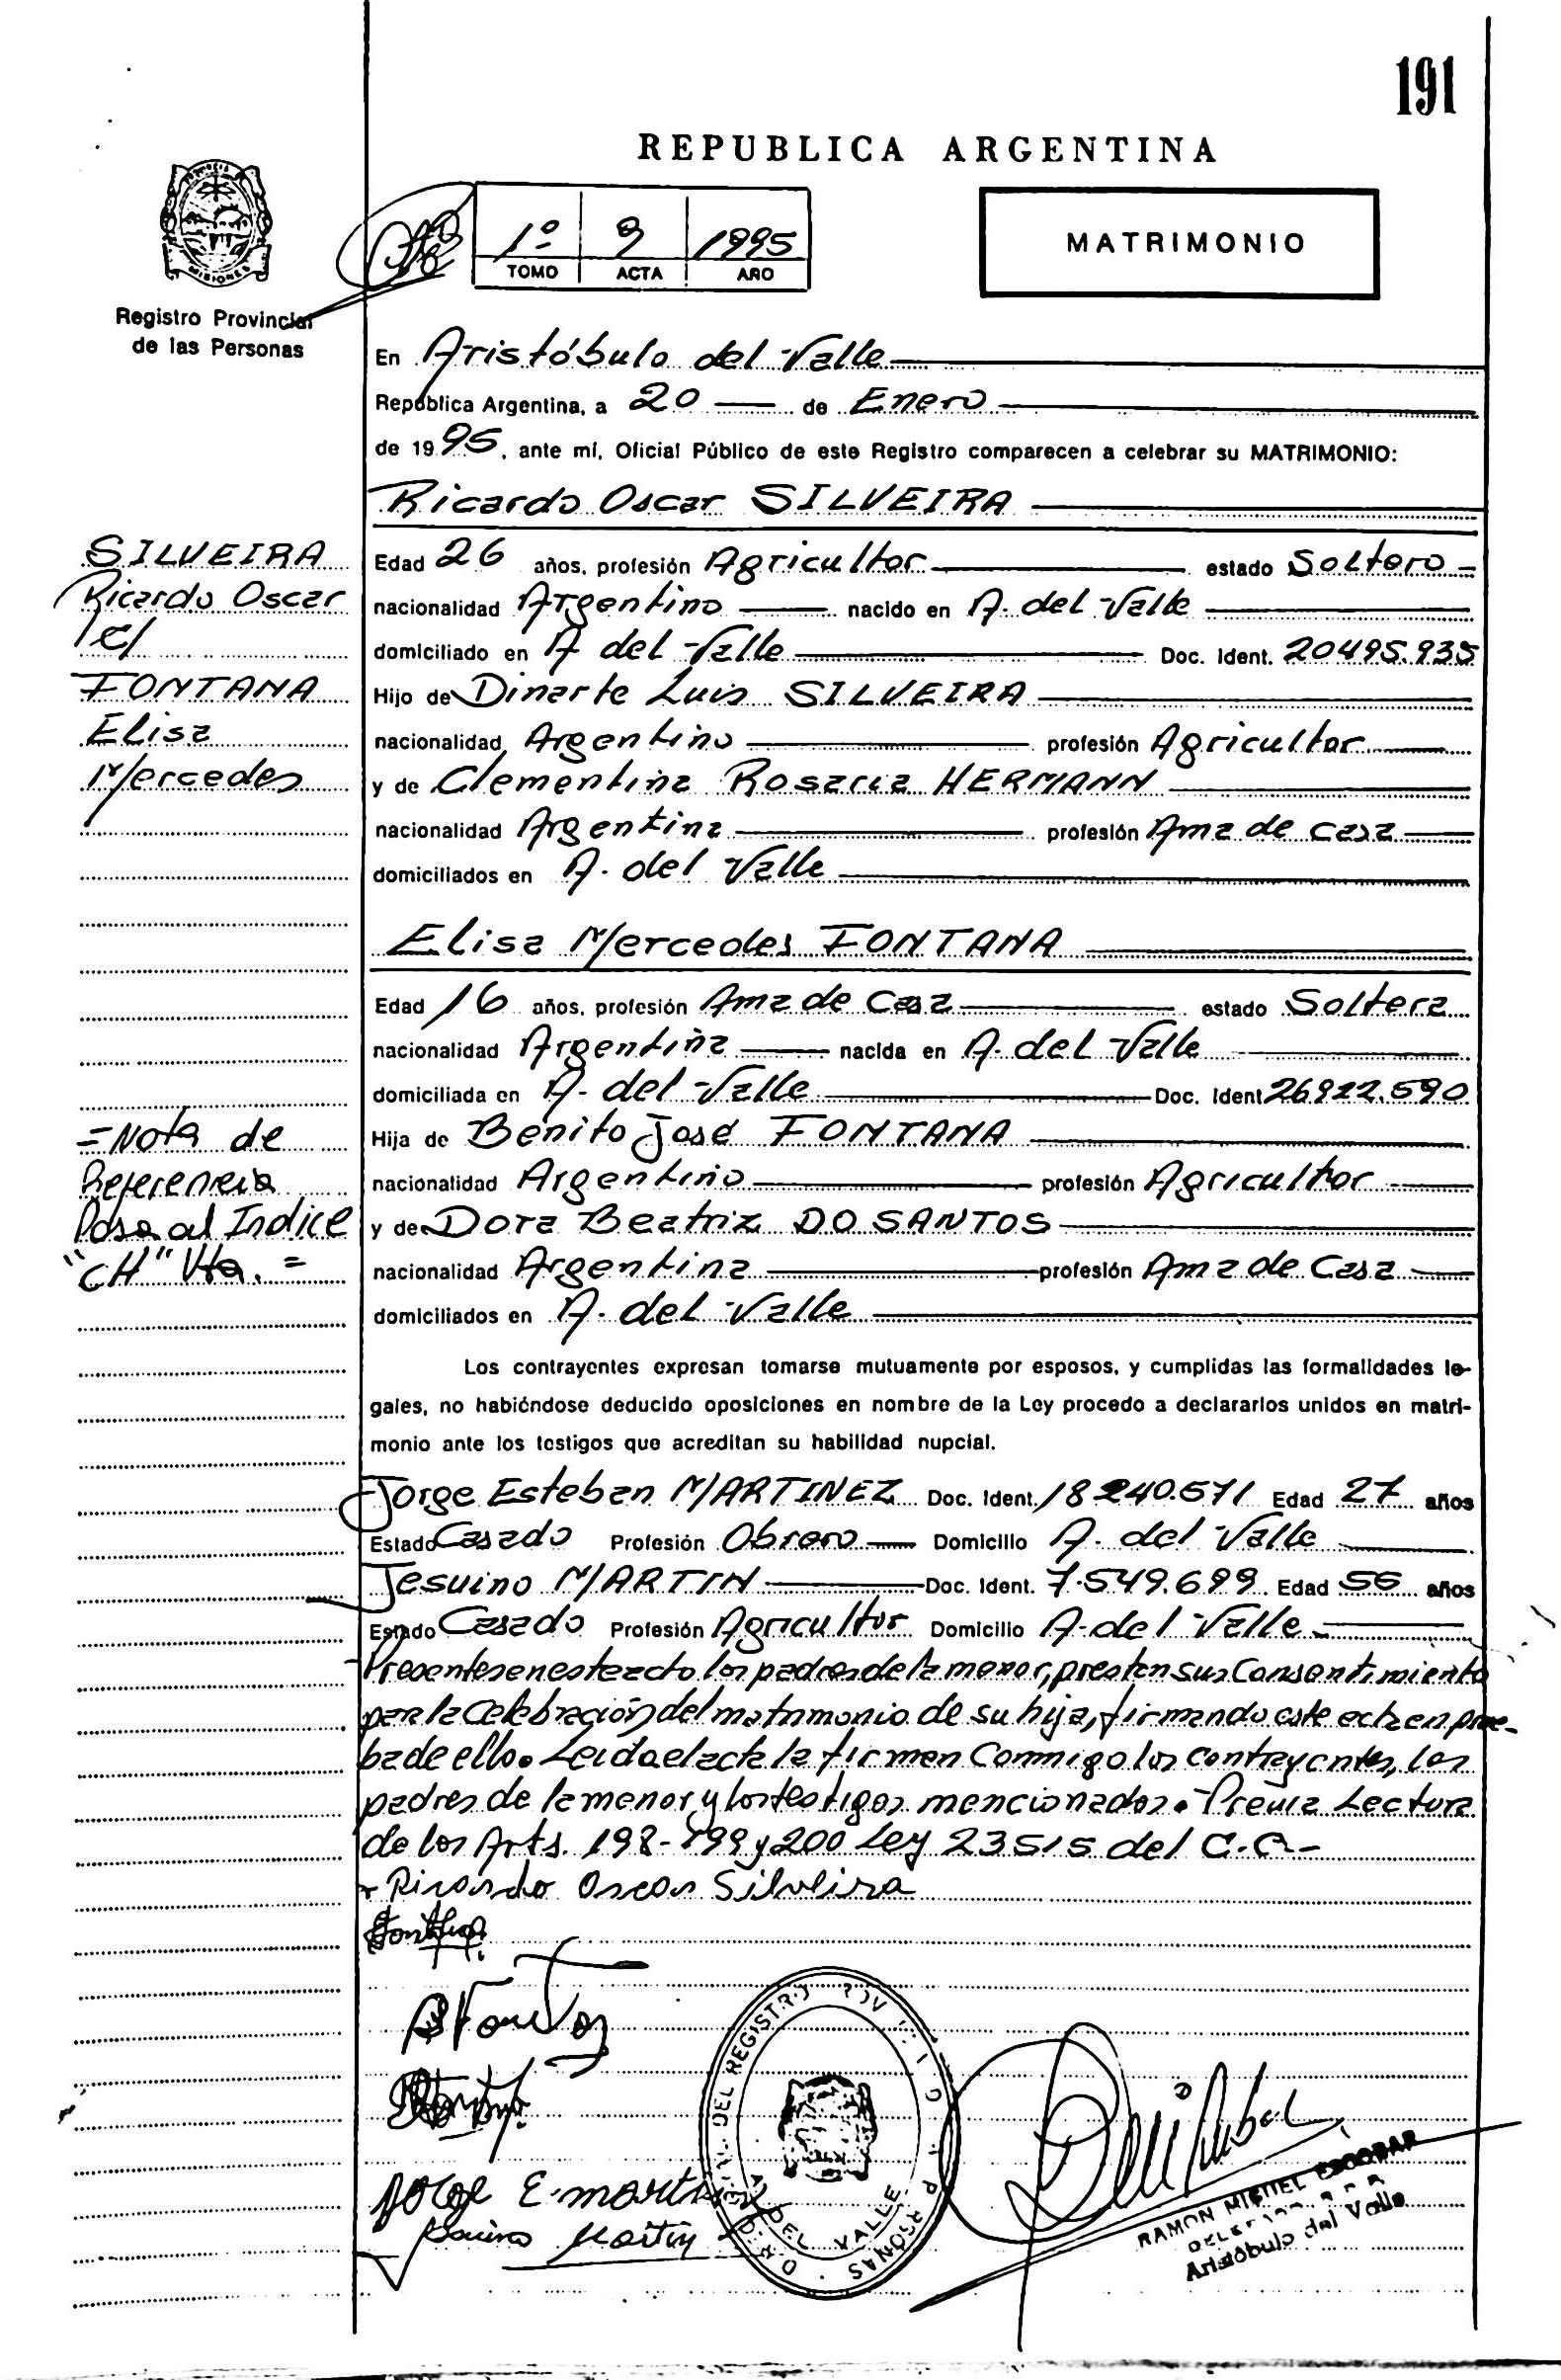 191
REPUBLICA ARGENTINA
MISIONES
Registro Provincial
de las Personas
1º 9 1995
TOMO ACTA AÑO
MATRIMONIO
En Aristóbulo del Valle
República Argentina, a 20 de Enero
de 1995, ante mí, Oficial Público de este Registro comparecen a celebrar su MATRIMONIO:
Ricardo Oscar SILVEIRA
SILVEIRA
Ricardo Oscar
c/
FONTANA
Elisa
Mercedes
Edad 26 años, profesión Agricultor estado Soltero
nacionalidad Argentino nacido en A. del Valle
domiciliado en A del Valle Doc. Ident. 20495.935
Hijo de Dinarte Luis SILVEIRA
nacionalidad Argentino profesión Agricultor
y de Clementina Rosaria HERMANN
nacionalidad Argentina profesión Ama de casa
domiciliados en A. del Valle
Elisa Mercedes FONTANA
Edad 16 años, profesión Ama de Casa estado Soltera
nacionalidad Argentina nacida en A. del Valle
domiciliada en A. del Valle Doc. Ident 26922.590
Hija de Benito José FONTANA
nacionalidad Argentino profesión Agricultor
y de Dora Beatriz DO SANTOS
nacionalidad Argentina profesión Ama de Casa
domiciliados en A. del Valle
=Nota de
Referencia
Pasa al Indice
"CH" Vta.=
Los contrayentes expresan tomarse mutuamente por esposos, y cumplidas las formalidades le-
gales, no habiéndose deducido oposiciones en nombre de la Ley procedo a declararlos unidos en matri-
monio ante los testigos que acreditan su habilidad nupcial.
Jorge Esteban MARTINEZ Doc. Ident. 18240.571 Edad 27 años
Estado Casado Profesión Obrero Domicilio A. del Valle
Jesuino MARTIN Doc. Ident. 7.549.699 Edad 56 años
Estado Casado Profesión Agricultor Domicilio A. del Valle
Presentes en este acto los padres de la menor, prestan sus Consentimiento
para la Celebración del matrimonio de su hija, firmando este acta en prue-
ba de ello. Leida el acta la firman Conmigo los contrayentes, los
padres de la menor y los testigos mencionados. Previa Lectura
de los Arts. 198-199 y 200 Ley 23515 del C.C.-
Ricardo Oscar Silveira
Jorge E. martin
Martin
DEL REGISTRO
DEL VALLE
RAMON MIGUEL ESCOBAR
Aristóbulo del Valle